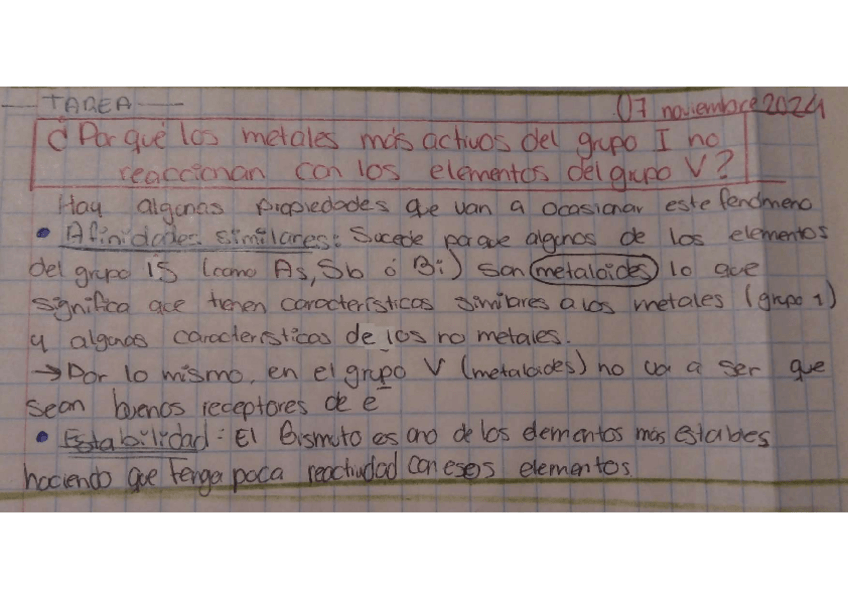 TAREA
07 noviembre 2024
¿Por qué los metales más activos del grupo I no
reaccionan con los elementos del grupo V?
Hay algunas propiedades que van a ocasionar este fenómeno
• Afinidades similares: Sucede porque algunos de los elementos
del grupo 15 (como As, Sb ó Bi) son metaloides lo que
significa que tienen características similares a los metales (grupo 1)
y algunas características de los no metales.
→ Por lo mismo, en el grupo V (metaloides) no va a ser que
sean buenos receptores de e⁻
• Estabilidad: El Bismuto es uno de los elementos más estables
haciendo que tenga poca reactividad con esos elementos.